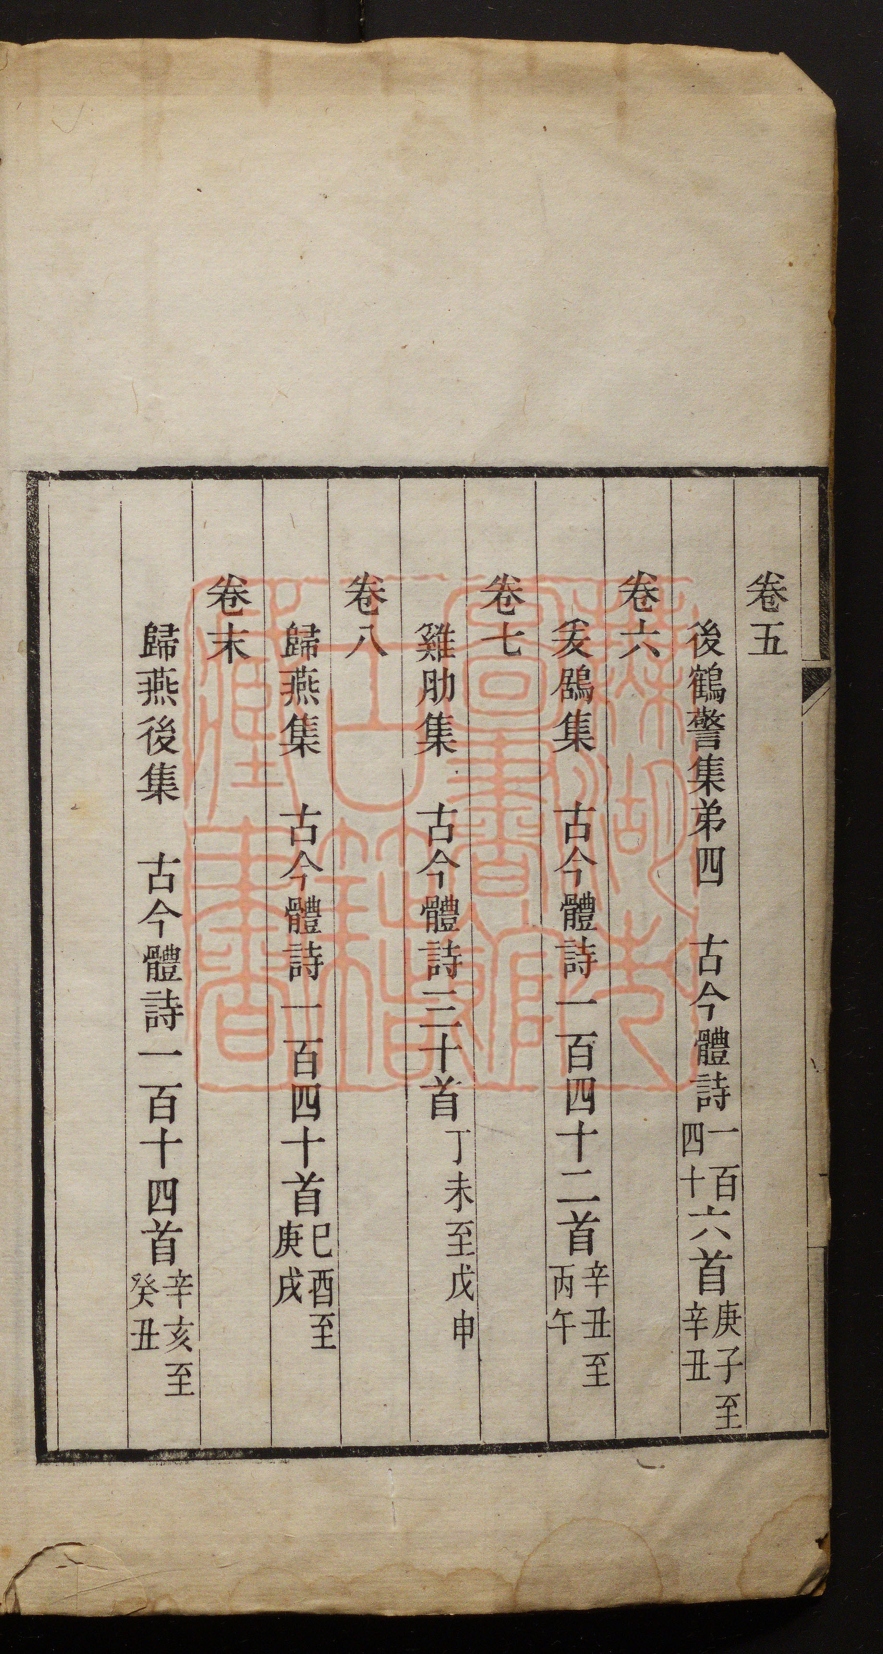 卷五
後鶴警集弟四　古今體詩一百四十六首庚子至辛丑
卷六
爰鷃集　古今體詩一百四十二首辛丑至丙午
卷七
雞肋集　古今體詩三十首丁未至戊申
卷八
歸燕集　古今體詩一百四十首巳酉至庚戌
卷末
歸燕後集　古今體詩一百十四首辛亥至癸丑